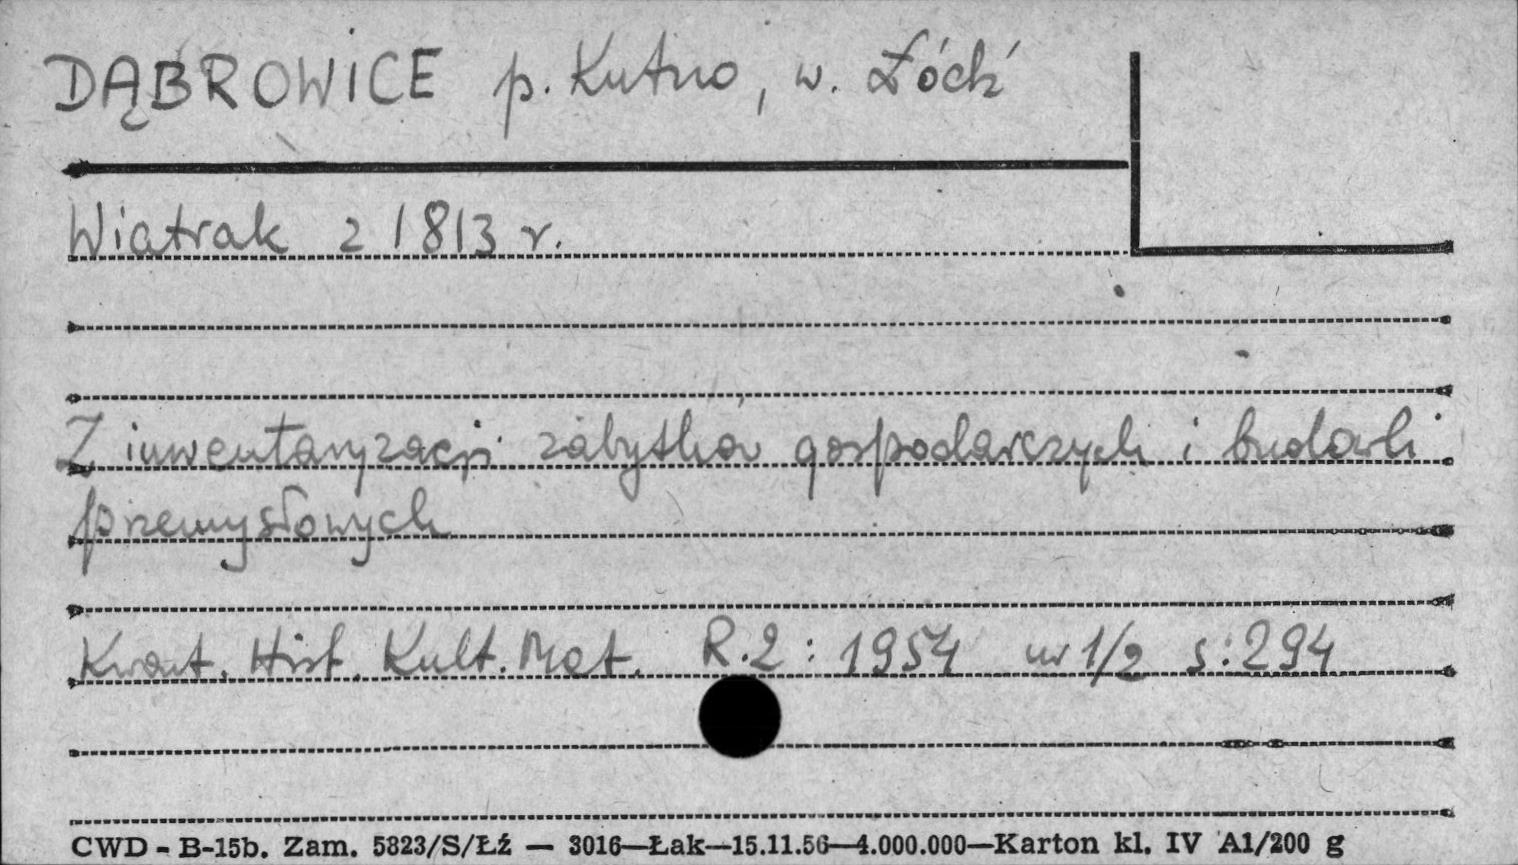 DĄBROWICE p. Kutno, w. Łódź
Wiatrak z 1813 r.
Z inwentaryzacji zabytków gospodarczych i budowli
przemysłowych
Kwart. Hist. Kult. Mat. R.2: 1954 nr 1/2 s: 294
CWD - B-15b. Zam. 5823/S/Łź — 3016—Łak—15.11.56—4.000.000—Karton kl. IV A1/200 g